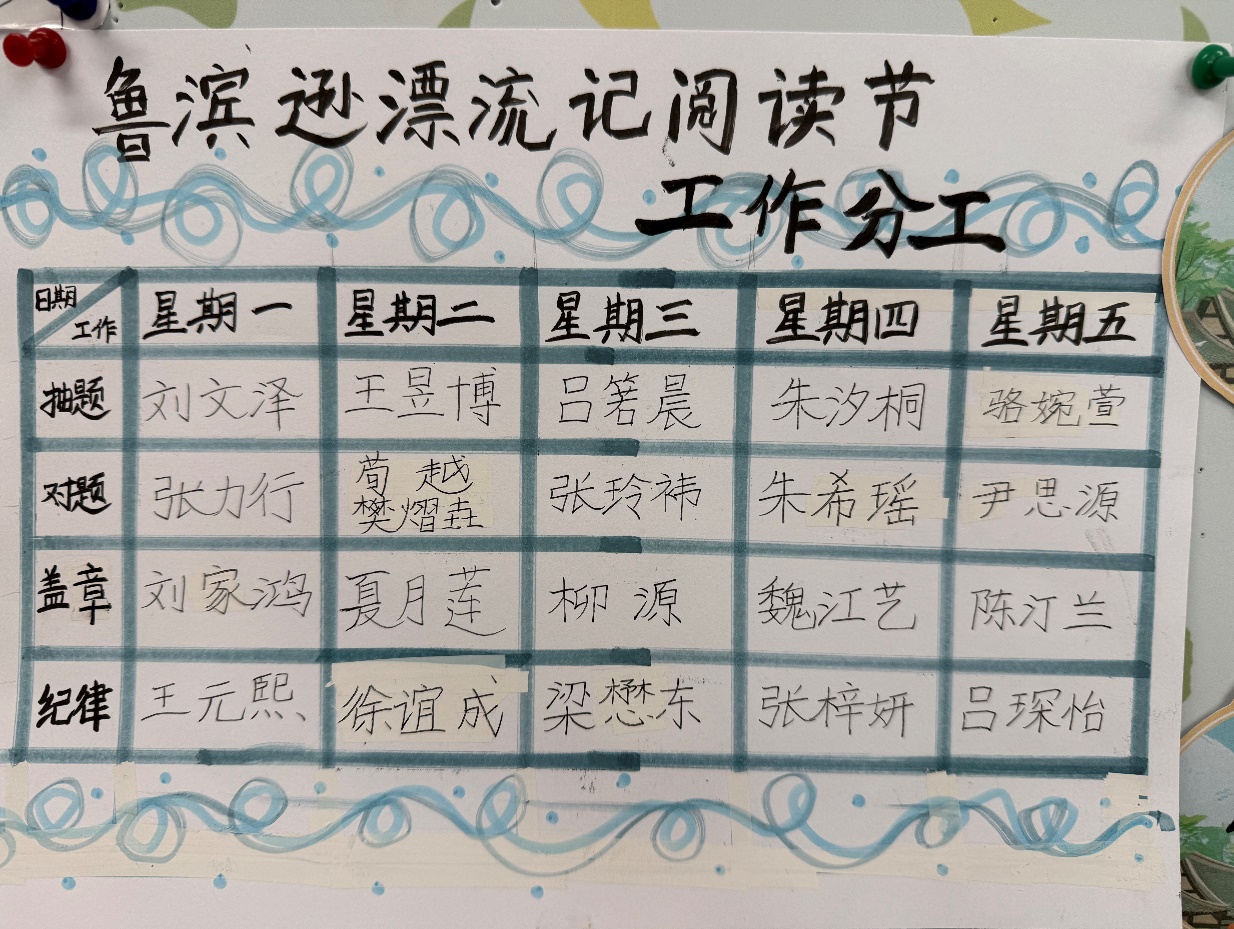 鲁滨逊漂流记阅读节
工作分工
日期 工作 星期一 星期二 星期三 星期四 星期五
抽题 刘文泽 王昱博 吕箬晨 朱汐桐 骆婉萱
对题 张力行 荀越 樊熠垚 张玲祎 朱希瑶 尹思源
盖章 刘家鸿 夏月莲 柳源 魏江艺 陈汀兰
纪律 王元熙 徐谊成 梁懋东 张梓妍 吕琛怡